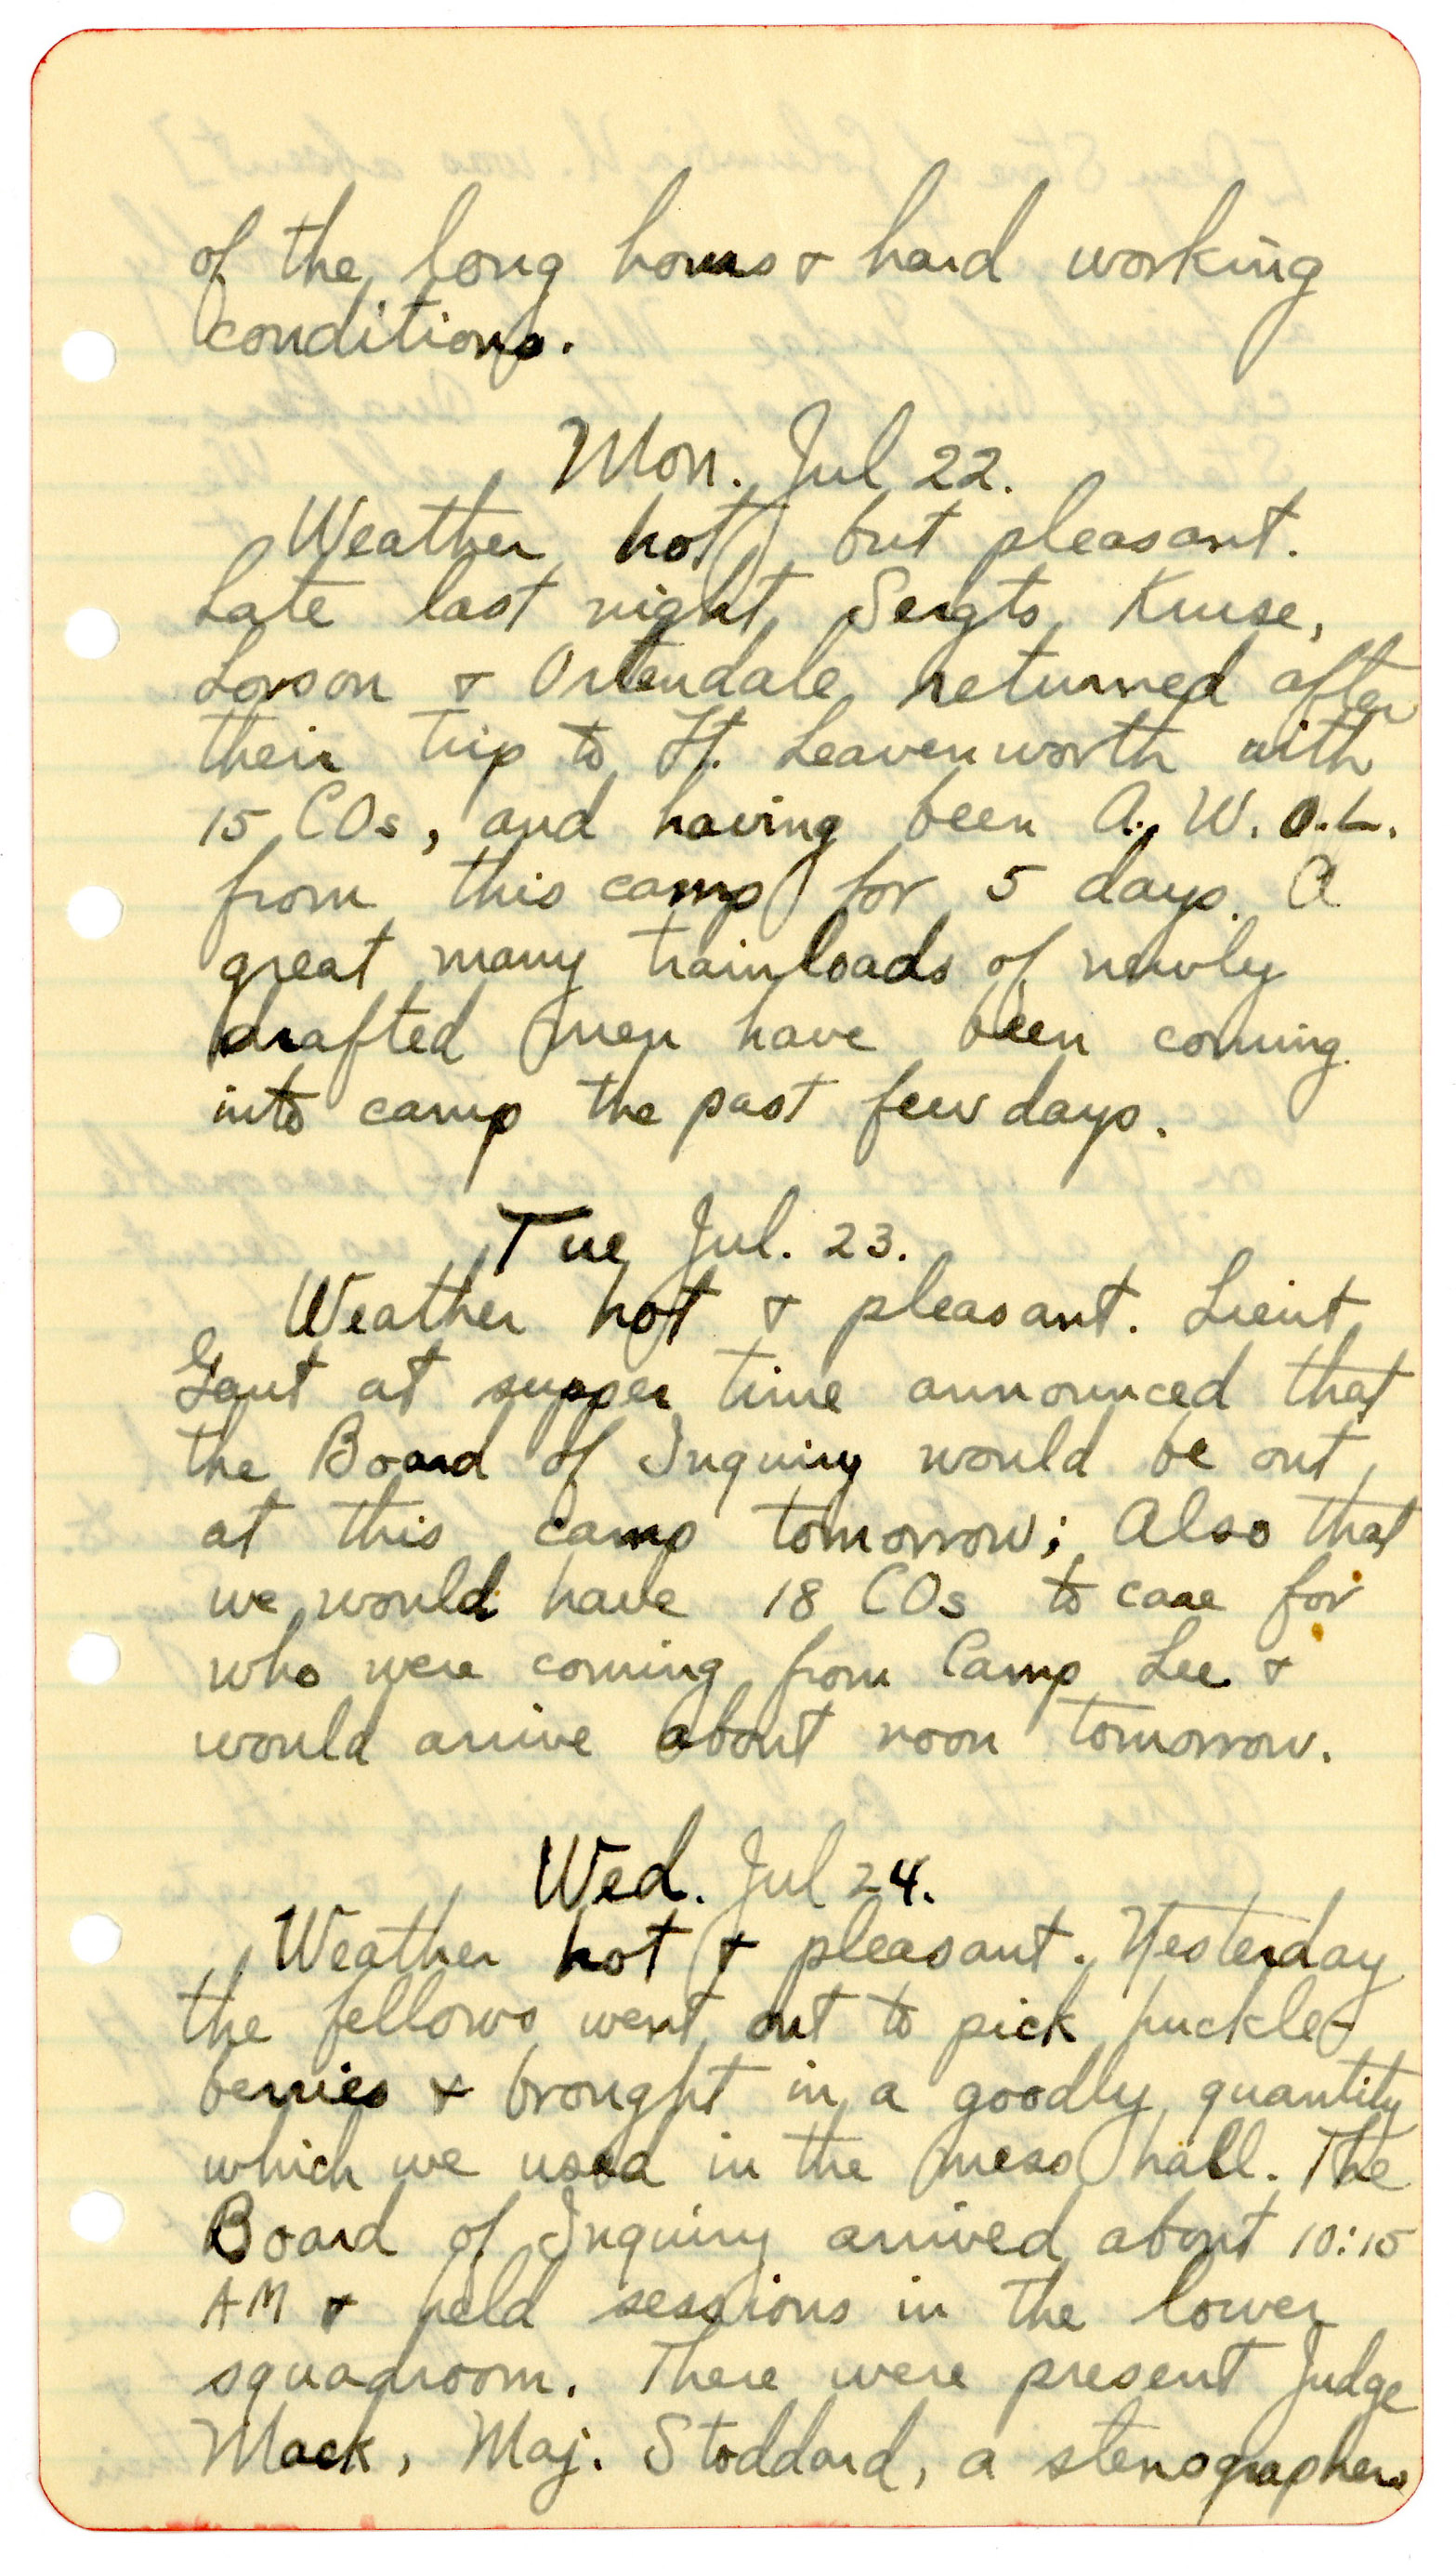 of the long hours & hard working
conditions.
Mon. Jul 22.
Weather hot, but pleasant.
Late last night Sergts Kruse,
Lorson & Ostendale returned after
their trip to Ft. Leavenworth with
15 COs, and having been A.W.O.L.
from this camp for 5 days. A
great many trainloads of newly
drafted men have been coming
into camp the past few days.
Tue Jul. 23.
Weather hot & pleasant. Lieut
Gaut at supper time announced that
the Board of Inquiry would be out
at this camp tomorrow; Also that
we would have 18 COs to care for
who were coming from Camp Lee &
would arrive about noon tomorrow.
Wed. Jul 24.
Weather hot & pleasant. Yesterday
the fellows went out to pick huckle-
berries & brought in a goodly quantity
which we used in the mess hall. The
Board of Inquiry arrived about 10:15
AM & held sessions in the lower
squadroom. There were present Judge
Mack, Maj. Stoddard, a stenographer